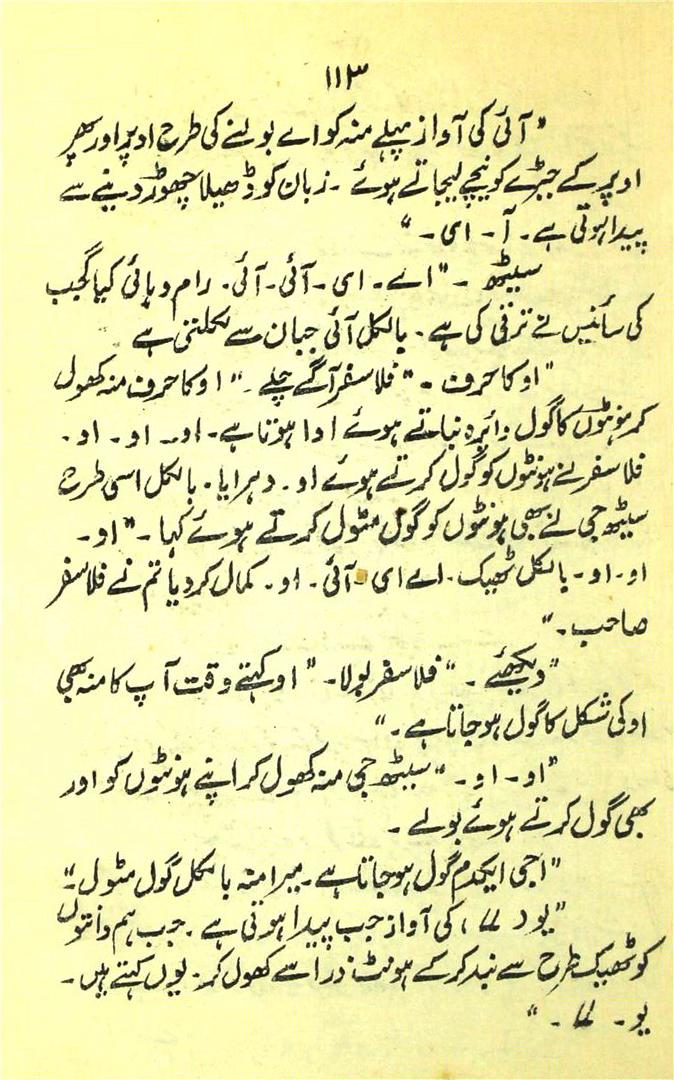 ۱۱۳
"آئی کی آواز پہلے منہ کو اے بولنے کی طرح اوپر اور پھر
اوپر کے جبڑے کو نیچے لیجاتے ہوئے ۔ زبان کو ڈھیلا چھوڑ دینے سے
پیدا ہوتی ہے ۔ آ ۔ ای ۔"
سیٹھ ۔ "اے ۔ ای ۔ آئی ۔ آئی ۔ رام دہائی کیا گجب
کی سائنیس نے ترقی کی ہے ۔ بالکل آئی جبان سے نکلتی ہے
"او کا حرف ۔" فلاسفر آگے چلے ۔ "او کا حرف منہ کھول
کر ہونٹوں کا گول دائرہ بناتے ہوئے ادا ہوتا ہے ۔ او ۔ او ۔ او ۔
فلاسفر نے ہونٹوں کو گول کرتے ہوئے او ۔ دہرایا ۔ بالکل اسی طرح
سیٹھ جی نے بھی ہونٹوں کو گول مٹول کرتے ہوئے کہا ۔ "او ۔
او ۔ او ۔ بالکل ٹھیک ۔ اے ای ۔ آئی ۔ او ۔ کمال کر دیا تم نے فلاسفر
صاحب ۔"
"دیکھئے ۔" فلاسفر بولا ۔ "او کہتے وقت آپ کا منہ بھی
او کی شکل کا گول ہو جاتا ہے ۔"
"او ۔ او ۔" سیٹھ جی منہ کھول کر اپنے ہونٹوں کو اور
بھی گول کرتے ہوئے بولے ۔
"اجی ایکدم گول ہو جاتا ہے ۔ میرا منہ بالکل گول مٹول ۔"
"یو ( U ) کی آواز جب پیدا ہوتی ہے ۔ جب ہم دانتوں
کو ٹھیک طرح سے بند کر کے ہونٹ ذرا سے کھول کر ۔ یوں کہتے ہیں ۔
یو ۔ U ۔"